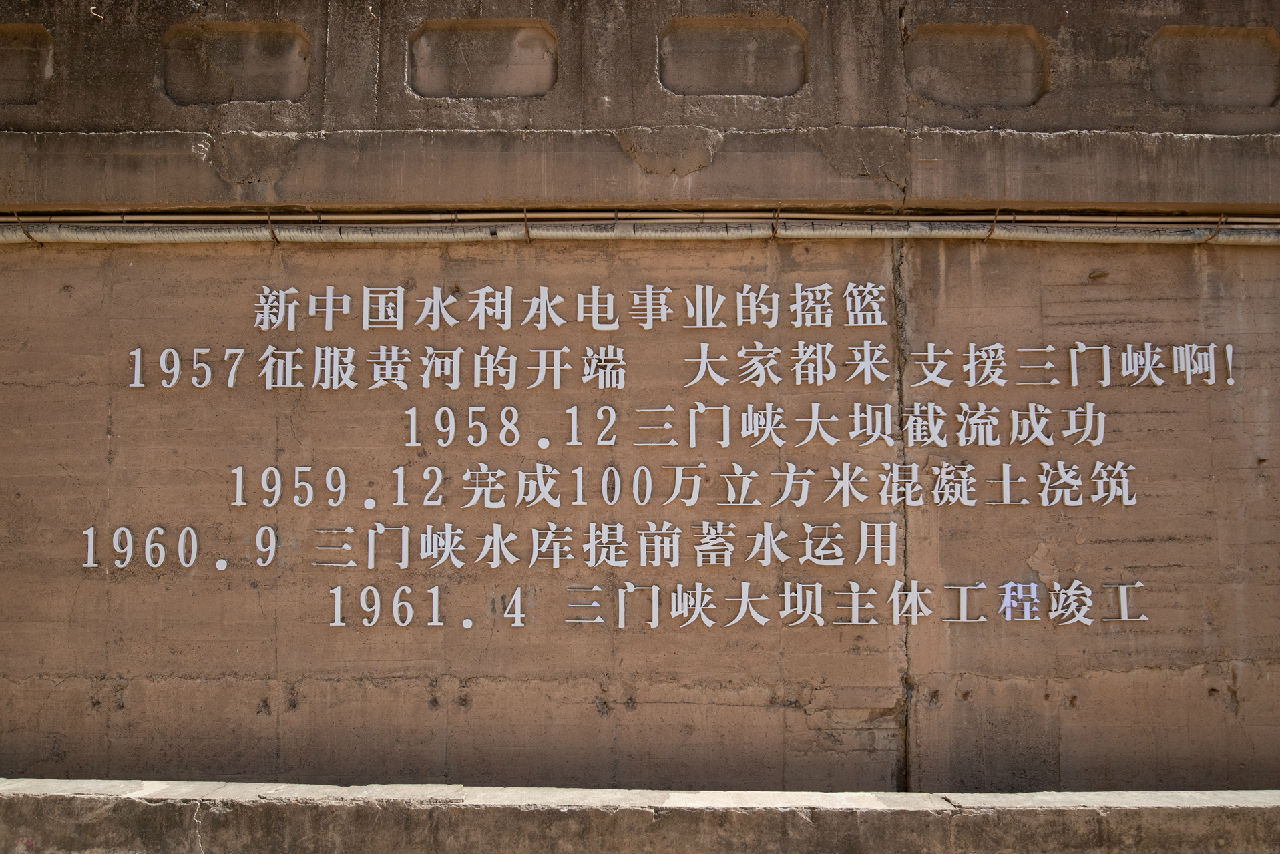 新中国水利水电事业的摇篮
1957征服黄河的开端 大家都来 支援三门峡啊!
1958.12三门峡大坝截流成功
1959.12完成100万立方米混凝土浇筑
1960.9 三门峡水库提前蓄水运用
1961.4 三门峡大坝主体工程竣工